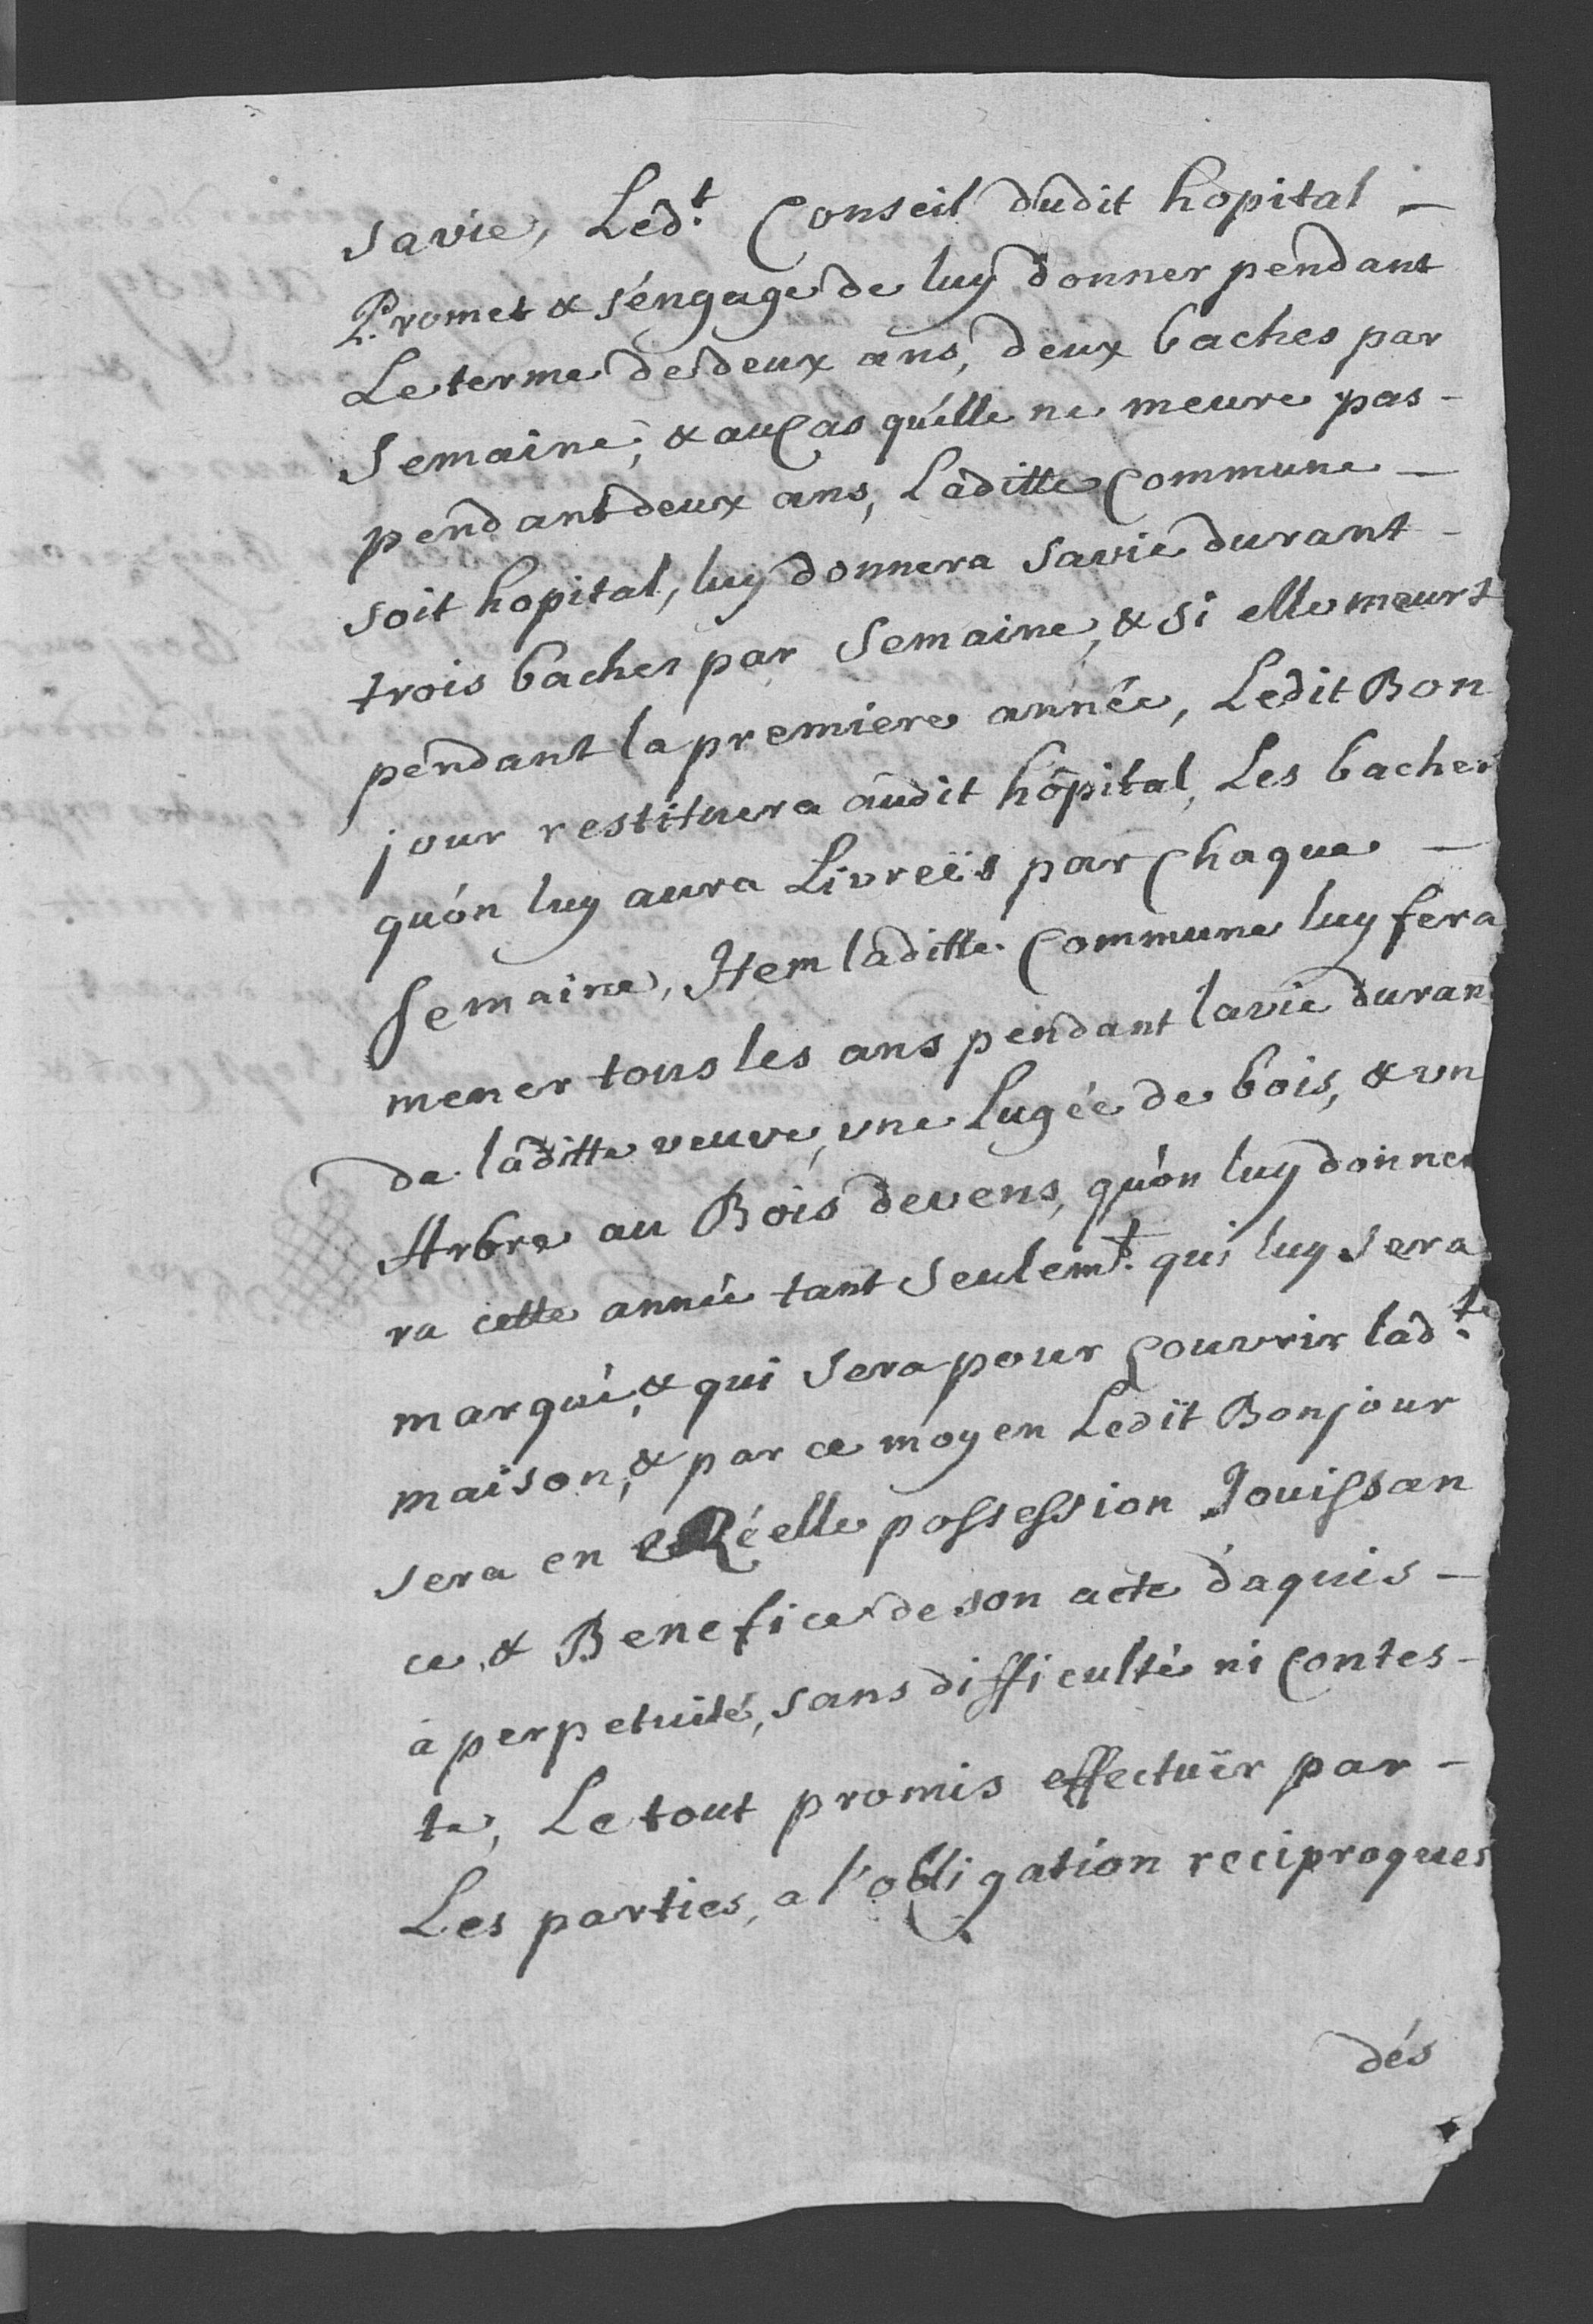 sa vie, Led.t Conseil dudit hopital –
Promet & s'éngage de luy donner pendant
Le terme de deux ans, deux baches par
Semaine, & au Cas qu'elle ne meure pas –
pendant deux ans, Laditte Commune –
soit hopital, luy donnera sa vie durant –
trois baches par Semaine, & si elle meurt
pendant la premiere année, Ledit Bon
jour restituera audit hôpital, Les baches
qu'on luy aura Livreës par Chaque –
Semaine, Item laditte Commune luy fera
mener tous les ans pendant la vie duran
de laditte veuve, vne Lugée de bois, & vn
Arbre au Bois devens, qu'on luy donne
ra cette année tant Seulem.t qui luy sera
marqué, & qui sera pour Couvrir lad.te
maison, & par ce moyen Ledit Bonjour
sera en Réelle possession Jouissan
ce, & Benefice de son acte d'aquis –
à perpetuité, sans difficulté ni Contes –
te, Le tout promis effectuër par –
Les parties, a l'obligation reciproques
dés